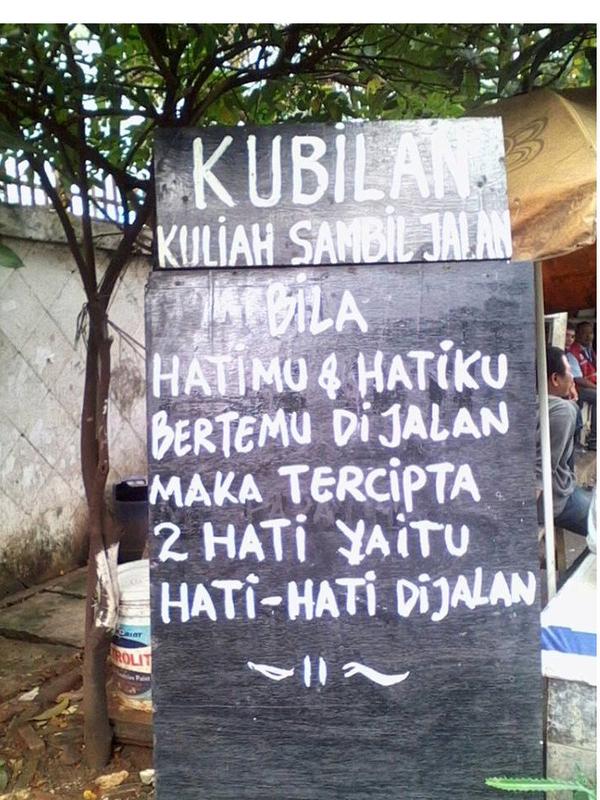 KUBiLAN
KULiAH SAMBiL JALAN
BiLA
HATiMU & HATiKU
BERTEMU Di JALAN
MAKA TERCiPTA
2 HATi YAiTU
HATi-HATi DiJALAN